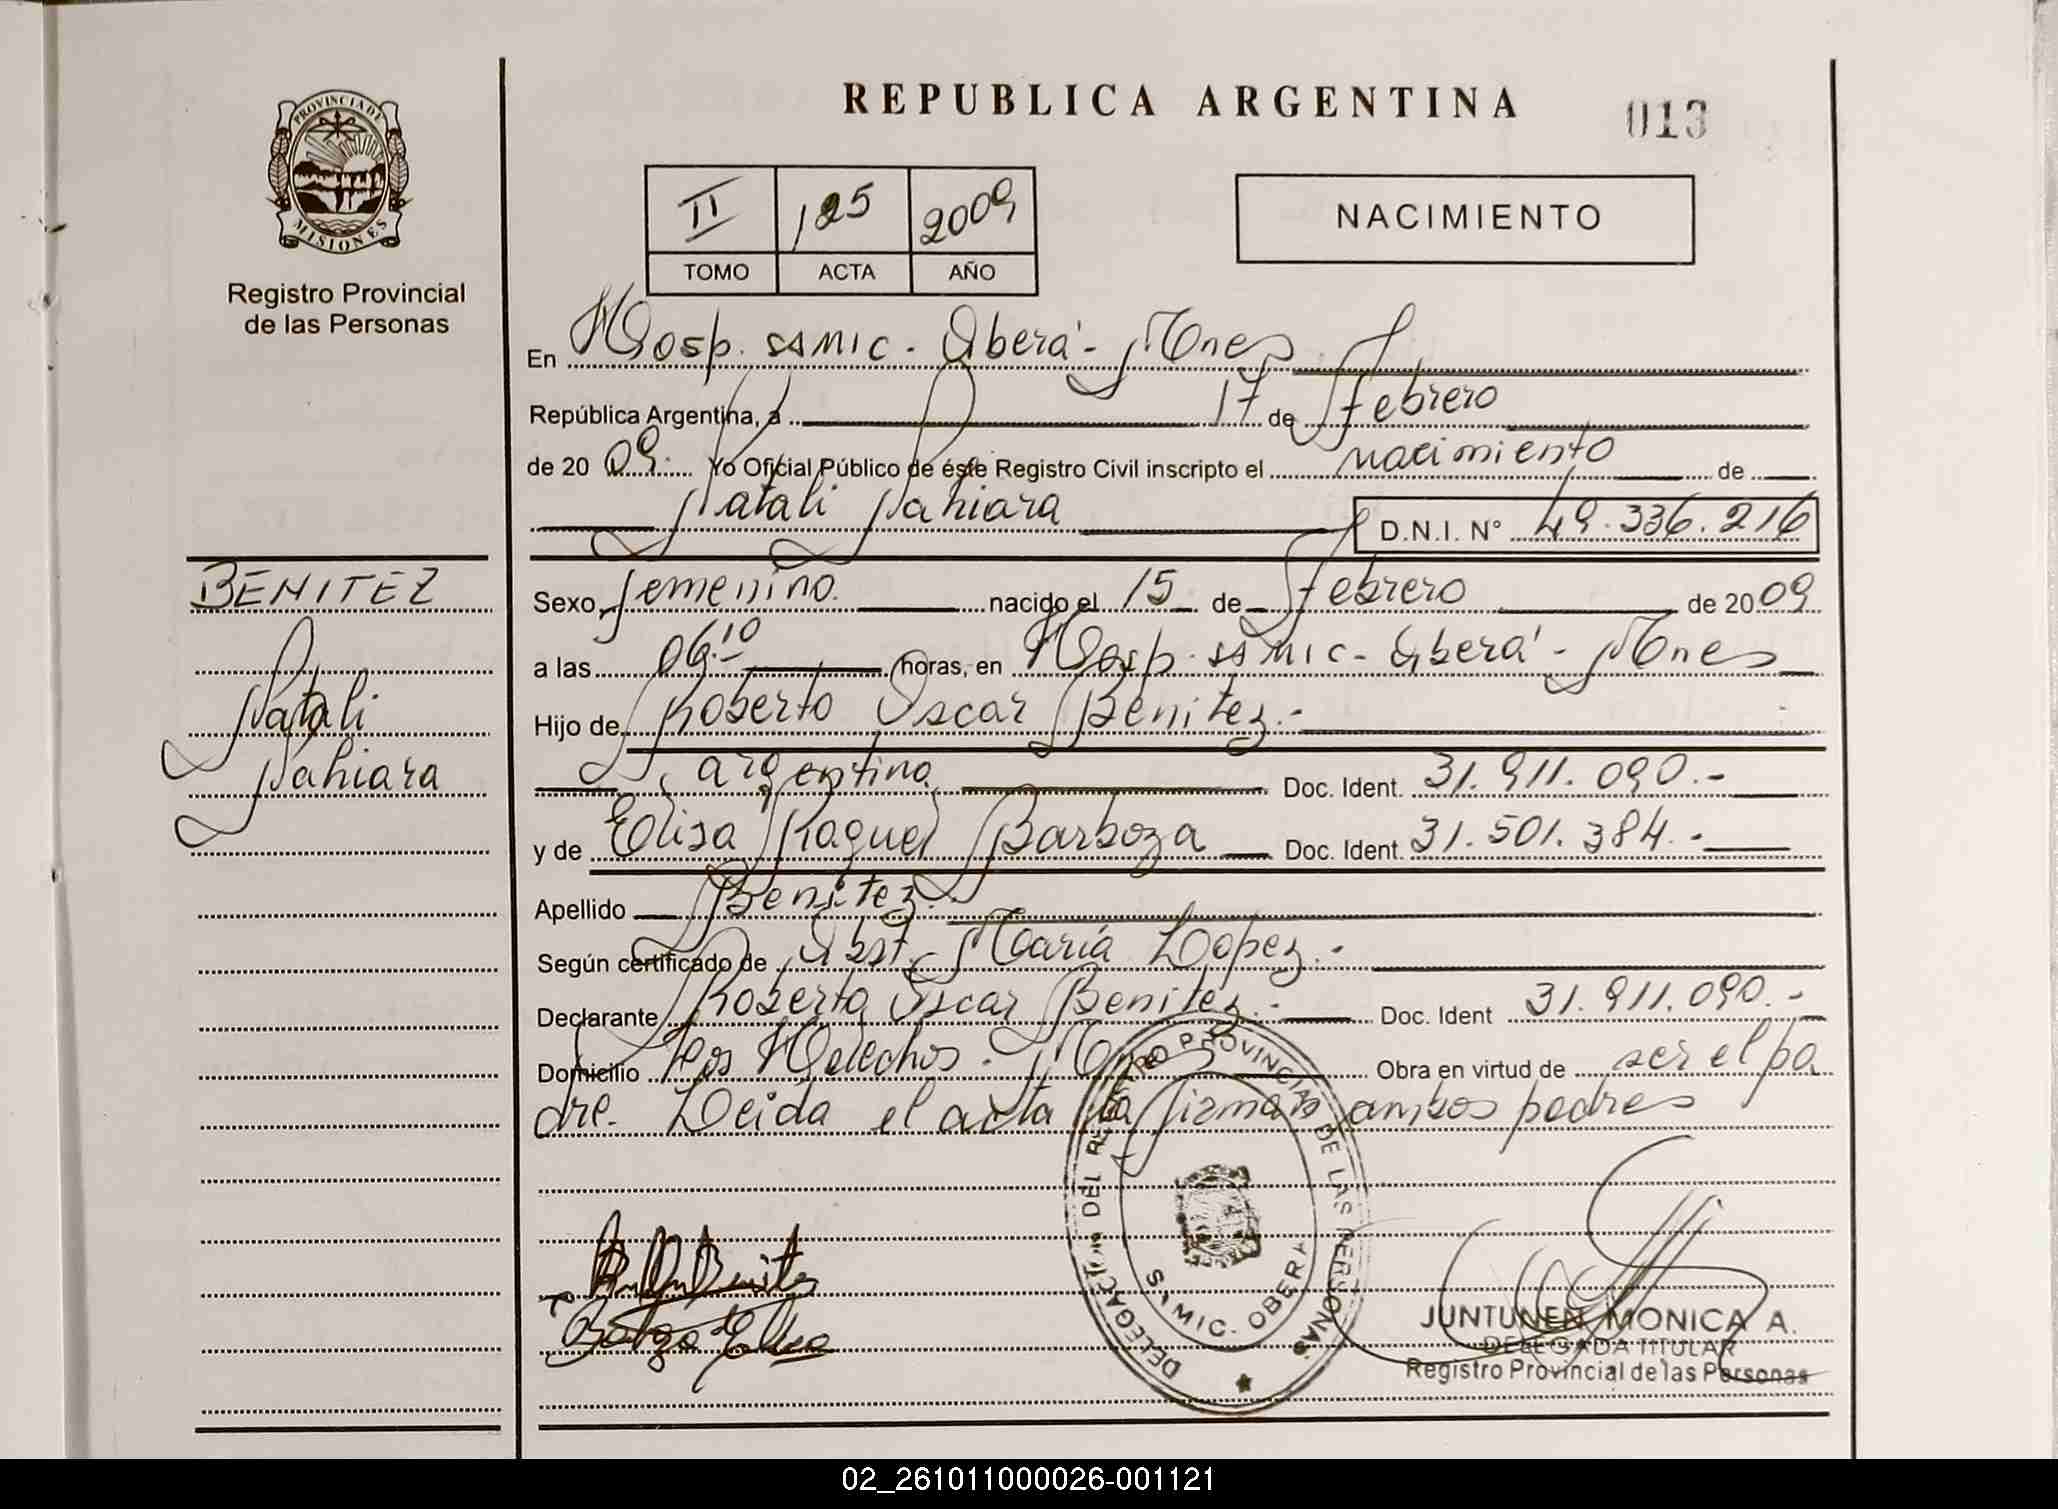 REPUBLICA ARGENTINA
013
PROVINCIA DE
MISIONES
Registro Provincial
de las Personas
II 125 2009
TOMO ACTA AÑO
NACIMIENTO
En Hosp. SAMIC - Oberá - Mnes
República Argentina, a 17 de Febrero
de 2009. Yo Oficial Público de éste Registro Civil inscripto el nacimiento de
Natali Nahiara
D.N.I. N° 49.336.216
BENITEZ
Natali
Nahiara
Sexo femenino. nacido el 15 de Febrero de 2009
a las 06:10 horas, en Hosp. SAMIC - Oberá - Mnes
Hijo de Roberto Oscar Benitez.-
argentino Doc. Ident. 31.911.090.-
y de Elisa Raquel Barboza Doc. Ident. 31.501.384.-
Apellido Benitez.
Según certificado de Obst. María Lopez.-
Declarante Roberto Oscar Benitez.- Doc. Ident 31.911.090.-
Domicilio Los Helechos. Mnes Obra en virtud de ser el pa
dre. Leida el acta la firman ambos padres
DELEGACION DEL REGISTRO PROVINCIAL DE LAS PERSONAS
SAMIC. OBERA
Benitez
JUNTUNEN MONICA A.
DELEGADA TITULAR
Registro Provincial de las Personas
02_261011000026-001121